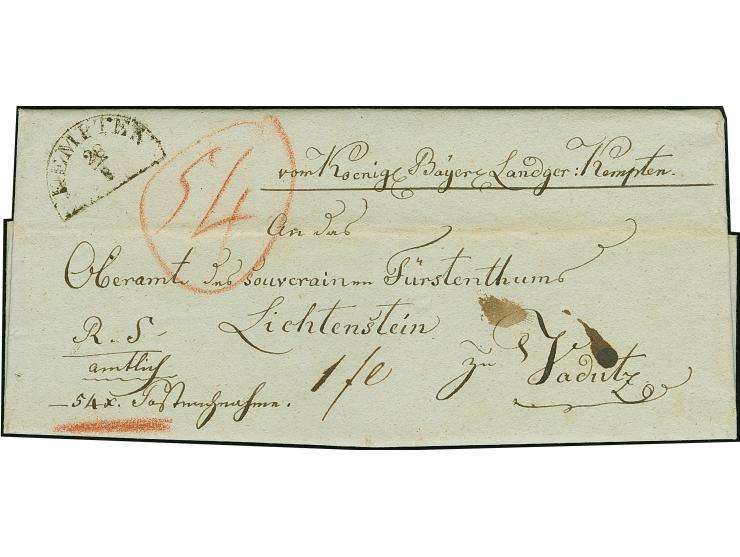 KEMPTEN
28
8
54
vom Koenigl Bayer Landger: Kempten.
An das
Oberamt des souverainen Fürstenthums
Lichtenstein
R. S.
amtlich
zu Vadutz
54x. Postnachnahme.